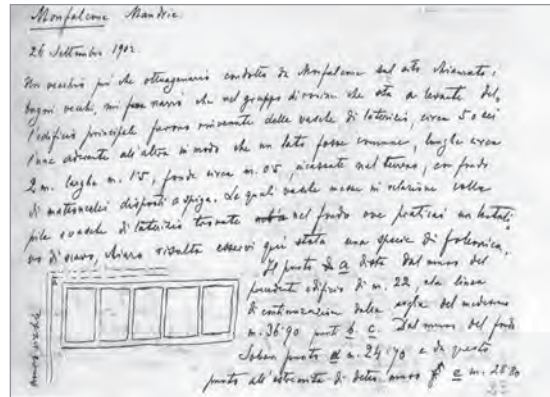 Monfalcone Mandrie.
26 Settembre 1902.
Un vecchio più che ottuagenario condotto da Monfalcone sul sito chiamato i
bagni vecchi, mi narrò che nel gruppo di rovine che sta a levante del,
l'edificio principale furono rinvenute delle vasche di laterizio, circa 5 o sei
l'una aderente all'altra in modo che un lato fosse comune, lunghe circa
2 m. larghe m. 1.5, fonde circa m. 0.5, incassate nel terreno, con fondo
di mattoncelli disposti a spiga. Le quali vasche messe in relazione colle
pile o vasche di laterizio trovate nel fondo ove praticai un
vo di scavo, chiaro risulta esservi qui stata una specie di fullonica.
Il punto a dista dal muro del
precedente edificio di m. 22, alla linea
di continuazione della soglia del medesimo
m. 36.90 punti b. c. Dal muro del fondo
Soban punto d m. 24.70 e da questo
punto all'estremità di detto muro e m. 28.80